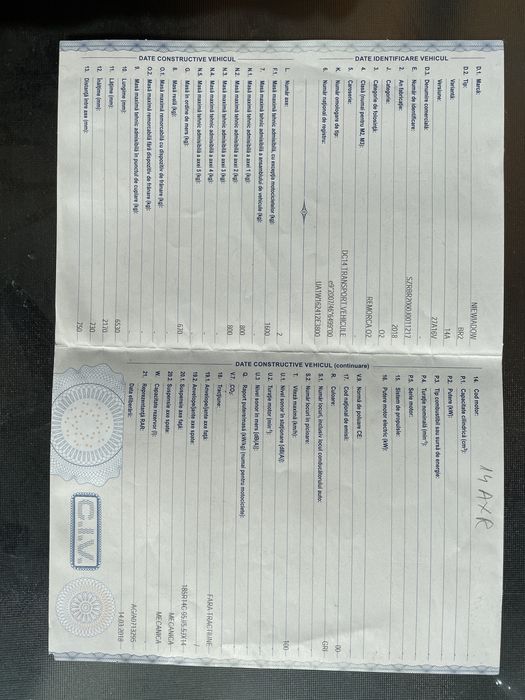 DATE IDENTIFICARE VEHICUL
D.1. Marcă: NIEWIADOW
D.2. Tip: BR2
Variantă: 14A
Versiune: 27A16V
D.3. Denumire comercială:
E. Număr de identificare:
2. An fabricație: 2018
Categorie: O2
3. Categorie de folosință: REMORCA O2
4. Clasă (numai pentru M2, M3):
5. Caroserie: DC14 TRANSPORT VEHICULE
K. Număr omologare de tip:
6. Număr național de registru:
DATE CONSTRUCTIVE VEHICUL
L. Număr axe: 2
F.1. Masă maximă tehnic admisibilă, cu excepția motocicletelor (kg): 1600
7. Masă maximă tehnic admisibilă a ansamblului de vehicule (kg):
N.1. Masă maximă tehnic admisibilă a axei 1 (kg): 800
N.2. Masă maximă tehnic admisibilă a axei 2 (kg): 800
N.3. Masă maximă tehnic admisibilă a axei 3 (kg):
N.4. Masă maximă tehnic admisibilă a axei 4 (kg):
N.5. Masă maximă tehnic admisibilă a axei 5 (kg):
G. Masă în ordine de mers (kg):
8. Masă reală (kg): 620
O.1. Masă maximă remorcabilă cu dispozitiv de frânare (kg):
O.2. Masă maximă remorcabilă fără dispozitiv de frânare (kg):
9. Masă maximă tehnic admisibilă în punctul de cuplare (kg):
10. Lungime (mm): 6530
11. Lățime (mm): 2170
12. Înălțime (mm): 730
13. Distanță între axe (mm): 750
14 AXR
14. Cod motor:
P.1. Capacitate cilindrică (cm³):
P.2. Putere (kW):
P.3. Tip combustibil sau sursă de energie:
P.4. Turație nominală (min⁻¹):
P.5. Serie motor:
15. Sistem de propulsie:
16. Putere motor electric (kW):
DATE CONSTRUCTIVE VEHICUL (continuare)
V.9. Normă de poluare CE:
17. Cod național de emisii: 00
R. Culoare: GRI
S.1. Număr locuri, inclusiv locul conducătorului auto:
S.2. Număr locuri în picioare:
T. Viteză maximă (km/h): 100
U.1. Nivel sonor în staționare [dB(A)]:
U.2. Turație motor (min⁻¹):
U.3. Nivel sonor în mers [dB(A)]:
Q. Raport putere/masă (kW/kg) (numai pentru motociclete):
V.7. CO₂:
18. Tracțiune: FARA TRACTIUNE
19.1. Anvelope/jante axa față:
19.2. Anvelope/jante axe spate:
20.1. Suspensie axa față: MECANICA
20.2. Suspensie axe spate: MECANICA
W. Capacitate rezervor (l):
21. Reprezentanță RAR:
Data eliberării: 14.03.2018
C.I.V.